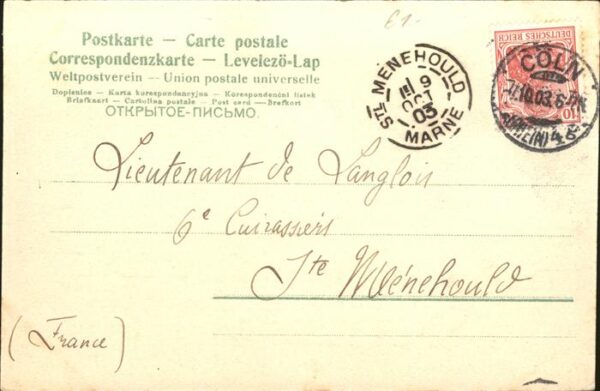 E1-
Postkarte – Carte postale
Correspondenzkarte – Levelezö-Lap
Weltpostverein – Union postale universelle
Dopisnice – Karta korespondencyjna – Korespondenční listek
Briefkaart – Cartolina postale – Post card – Brefkort
ОТКРЫТОЕ-ПИСЬМО.
STE. MENEHOULD
9
OCT
03
MARNE
DEUTSCHES REICH
10
CÖLN
10.03.6-7N.
(RHEIN) 4
Lieutenant de Langlois
6e Cuirassiers
Ste Ménehould
(France)